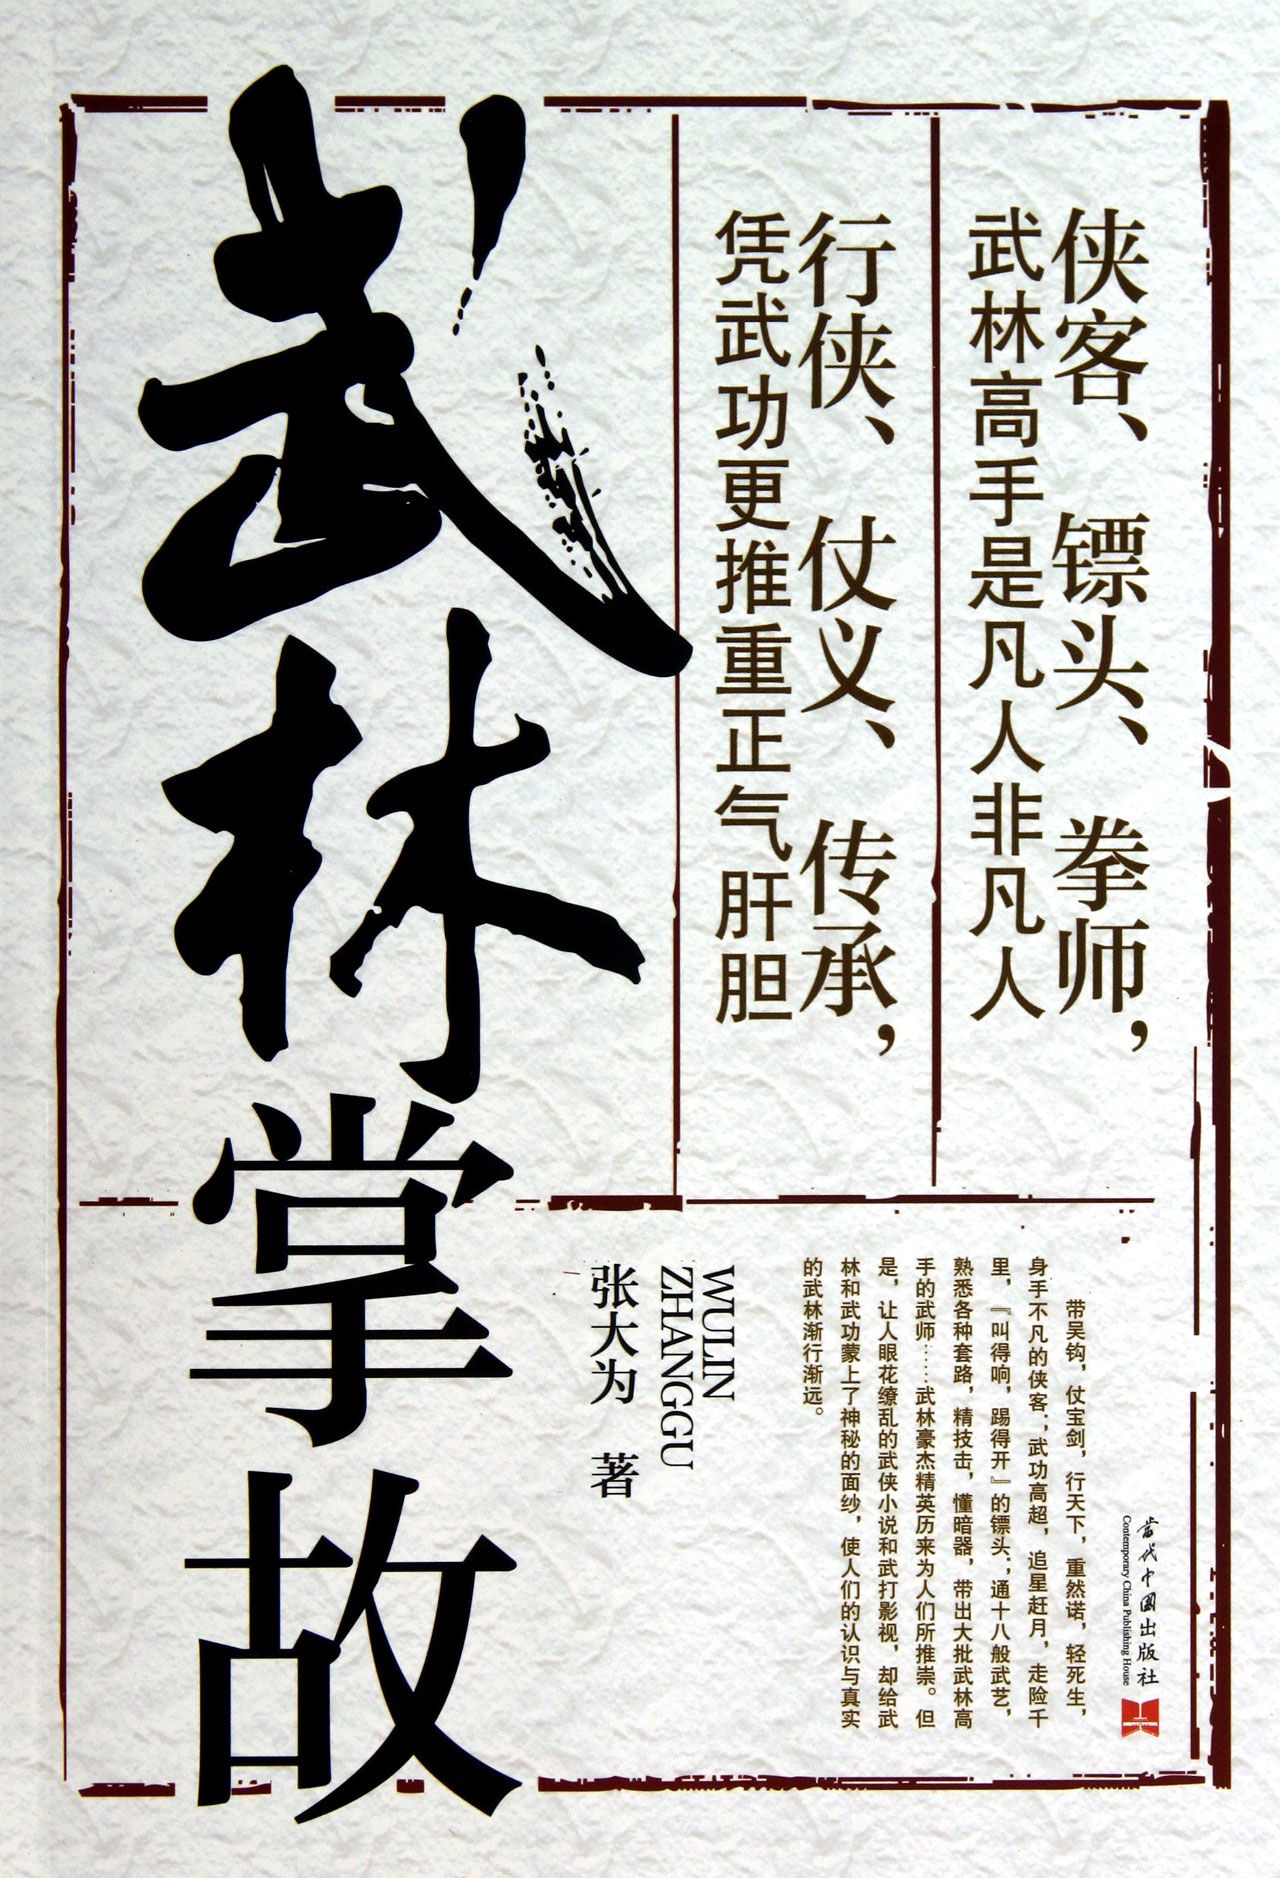 侠客、镖头、拳师，
武林高手是凡人非凡人
行侠、仗义、传承，
凭武功更推重正气肝胆
武林掌故
當代中國出版社
Contemporary China Publishing House
带吴钩，仗宝剑，行天下，重然诺，轻死生，
身手不凡的侠客；武功高超，追星赶月，走险千
里，『叫得响，踢得开』的镖头；通十八般武艺，
熟悉各种套路，精技击，懂暗器，带出大批武林高
手的武师……武林豪杰精英历来为人们所推崇。但
是，让人眼花缭乱的武侠小说和武打影视，却给武
林和武功蒙上了神秘的面纱，使人们的认识与真实
的武林渐行渐远。
WULIN
ZHANGGU
张大为 著